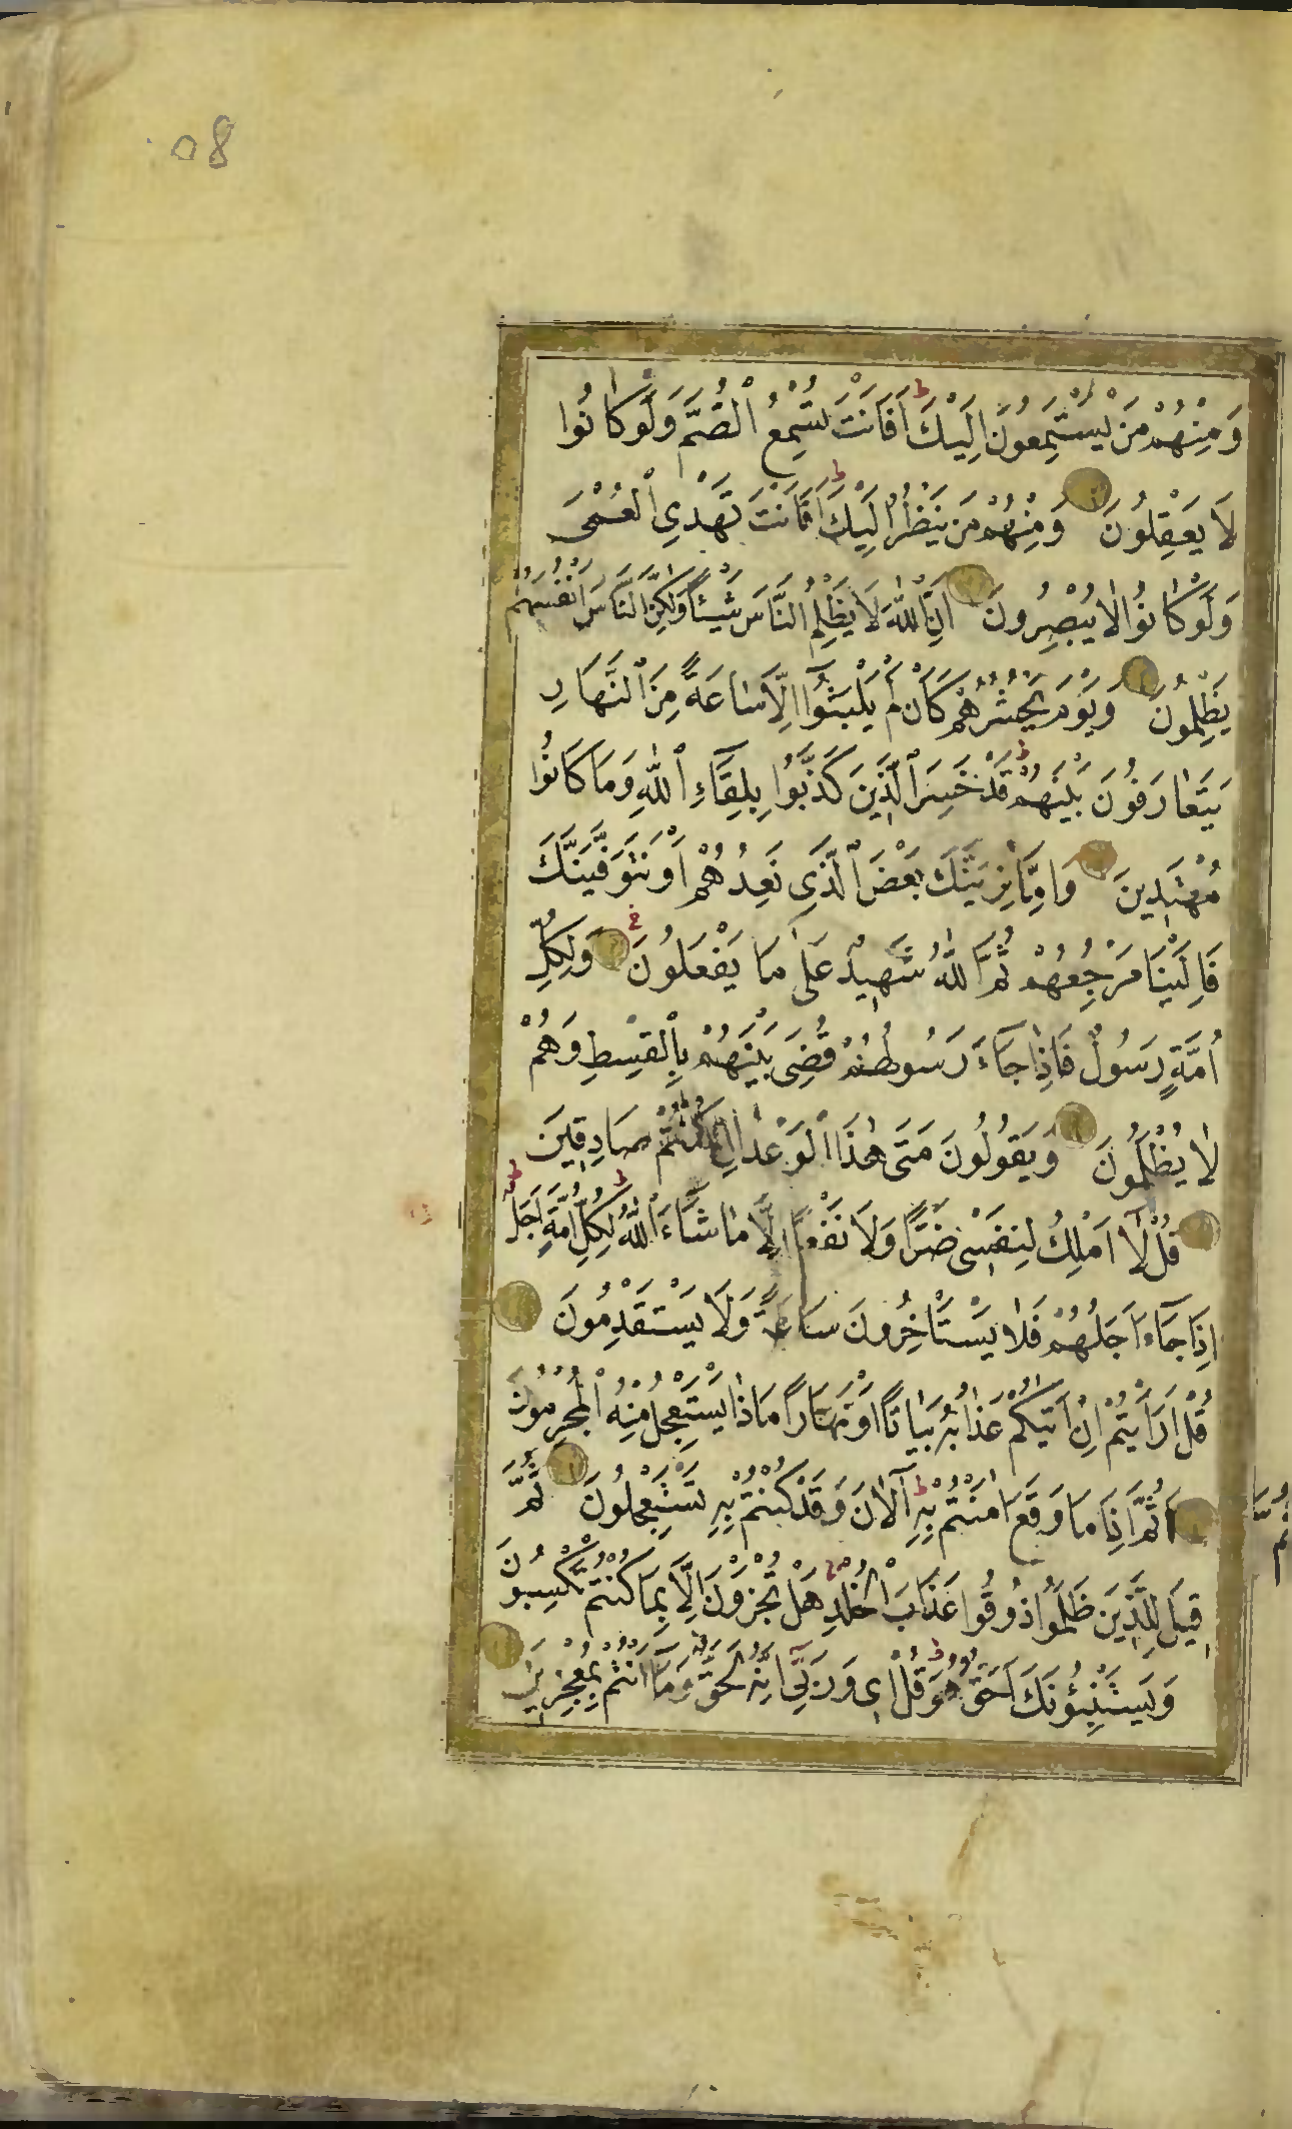 08
وَمِنْهُمْ مَنْ يَسْتَمِعُونَ اِلَيْكَ ط اَفَاَنْتَ تُسْمِعُ الصُّمَّ وَلَوْ كَانُوا
لَا يَعْقِلُونَ وَمِنْهُمْ مَنْ يَنْظُرُ اِلَيْكَ ط اَفَاَنْتَ تَهْدِي الْعُمْىَ
وَلَوْ كَانُوا لَا يُبْصِرُونَ اِنَّ اللّٰهَ لَا يَظْلِمُ النَّاسَ شَيْئًا وَلٰكِنَّ النَّاسَ اَنْفُسَهُمْ
يَظْلِمُونَ وَيَوْمَ يَحْشُرُهُمْ كَاَنْ لَمْ يَلْبَثُوٓا اِلَّا سَاعَةً مِنَ النَّهَارِ
يَتَعَارَفُونَ بَيْنَهُمْ ط قَدْ خَسِرَ الَّذِينَ كَذَّبُوا بِلِقَٓاءِ اللّٰهِ وَمَا كَانُوا
مُهْتَدِينَ وَاِمَّا نُرِيَنَّكَ بَعْضَ الَّذِي نَعِدُهُمْ اَوْ نَتَوَفَّيَنَّكَ
فَاِلَيْنَا مَرْجِعُهُمْ ثُمَّ اللّٰهُ شَهِيدٌ عَلٰى مَا يَفْعَلُونَ وَلِكُلِّ
اُمَّةٍ رَسُولٌ فَاِذَا جَٓاءَ رَسُولُهُمْ قُضِىَ بَيْنَهُمْ بِالْقِسْطِ وَهُمْ
لَا يُظْلَمُونَ وَيَقُولُونَ مَتٰى هٰذَا الْوَعْدُ اِنْ كُنْتُمْ صَادِقِينَ
قُلْ لَٓا اَمْلِكُ لِنَفْسِى ضَرًّا وَلَا نَفْعًا اِلَّا مَا شَٓاءَ اللّٰهُ ط لِكُلِّ اُمَّةٍ اَجَلٌ ط
اِذَا جَٓاءَ اَجَلُهُمْ فَلَا يَسْتَاْخِرُونَ سَاعَةً وَلَا يَسْتَقْدِمُونَ
قُلْ اَرَاَيْتُمْ اِنْ اَتٰيكُمْ عَذَابُهُ بَيَاتًا اَوْ نَهَارًا مَاذَا يَسْتَعْجِلُ مِنْهُ الْمُجْرِمُونَ
اَثُمَّ اِذَا مَا وَقَعَ اٰمَنْتُمْ بِهِ ط آلْاٰنَ وَقَدْ كُنْتُمْ بِهِ تَسْتَعْجِلُونَ ثُمَّ
قِيلَ لِلَّذِينَ ظَلَمُوا ذُوقُوا عَذَابَ الْخُلْدِ هَلْ تُجْزَوْنَ اِلَّا بِمَا كُنْتُمْ تَكْسِبُونَ
وَيَسْتَنْبِئُونَكَ اَحَقٌّ هُوَ ط قُلْ اِى وَرَبِّٓى اِنَّهُ لَحَقٌّ وَمَٓا اَنْتُمْ بِمُعْجِزِينَ